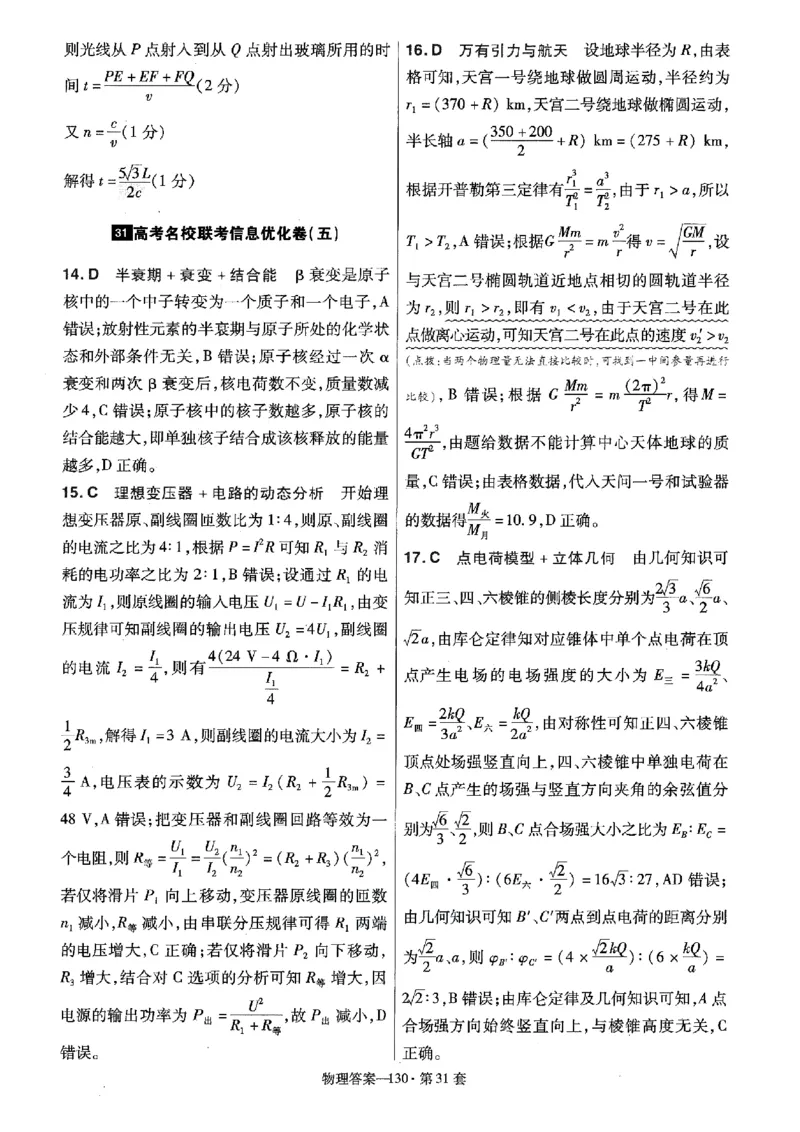 则光线从 P 点射入到从 Q 点射出玻璃所用的时
间 t = (PE + EF + FQ)/v (2 分)
又 n = c/v (1 分)
解得 t = 5√3L/2c (1 分)
31 高考名校联考信息优化卷(五)
14. D 半衰期 + 衰变 + 结合能 β 衰变是原子
核中的一个中子转变为一个质子和一个电子,A
错误;放射性元素的半衰期与原子所处的化学状
态和外部条件无关,B 错误;原子核经过一次 α
衰变和两次 β 衰变后,核电荷数不变,质量数减
少 4,C 错误;原子核中的核子数越多,原子核的
结合能越大,即单独核子结合成该核释放的能量
越多,D 正确。
15. C 理想变压器 + 电路的动态分析 开始理
想变压器原、副线圈匝数比为 1∶4,则原、副线圈
的电流之比为 4∶1,根据 P = I²R 可知 R₁ 与 R₂ 消
耗的电功率之比为 2∶1,B 错误;设通过 R₁ 的电
流为 I₁,则原线圈的输入电压 U₁ = U − I₁R₁,由变
压规律可知副线圈的输出电压 U₂ = 4U₁,副线圈
的电流 I₂ = I₁/4,则有 4(24 V − 4 Ω · I₁)/(I₁/4) = R₂ +
1/2 R₃ₘ,解得 I₁ = 3 A,则副线圈的电流大小为 I₂ =
3/4 A,电压表的示数为 U₂ = I₂(R₂ + 1/2 R₃ₘ) =
48 V,A 错误;把变压器和副线圈回路等效为一
个电阻,则 R等 = U₁/I₁ = U₂/I₂ (n₁/n₂)² = (R₂ + R₃)(n₁/n₂)²,
若仅将滑片 P₁ 向上移动,变压器原线圈的匝数
n₁ 减小,R等 减小,由串联分压规律可得 R₁ 两端
的电压增大,C 正确;若仅将滑片 P₂ 向下移动,
R₃ 增大,结合对 C 选项的分析可知 R等 增大,因
电源的输出功率为 P出 = U²/(R₁ + R等),故 P出 减小,D
错误。
16. D 万有引力与航天 设地球半径为 R,由表
格可知,天宫一号绕地球做圆周运动,半径约为
r₁ = (370 + R) km,天宫二号绕地球做椭圆运动,
半长轴 a = ((350 + 200)/2 + R) km = (275 + R) km,
根据开普勒第三定律有 r₁³/T₁² = a³/T₂²,由于 r₁ > a,所以
T₁ > T₂,A 错误;根据 G Mm/r² = m v²/r 得 v = √(GM/r),设
与天宫二号椭圆轨道近地点相切的圆轨道半径
为 r₂,则 r₁ > r₂,即有 v₁ < v₂,由于天宫二号在此
点做离心运动,可知天宫二号在此点的速度 v₂′ > v₂
(点拨:当两个物理量无法直接比较时,可找到一中间参量再进行
比较),B 错误;根据 G Mm/r² = m (2π)²/T² r,得 M =
4π²r³/GT²,由题给数据不能计算中心天体地球的质
量,C 错误;由表格数据,代入天问一号和试验器
的数据得 M火/M月 = 10.9,D 正确。
17. C 点电荷模型 + 立体几何 由几何知识可
知正三、四、六棱锥的侧棱长度分别为 2√3/3 a、√6/2 a、
√2a,由库仑定律知对应锥体中单个点电荷在顶
点产生电场的电场强度的大小为 E三 = 3kQ/4a²、
E四 = 2kQ/3a²、E六 = kQ/2a²,由对称性可知正四、六棱锥
顶点处场强竖直向上,四、六棱锥中单独电荷在
B、C 点产生的场强与竖直方向夹角的余弦值分
别为 √6/3、√2/2,则 B、C 点合场强大小之比为 E_B∶E_C =
(4E四 · √6/3)∶(6E六 · √2/2) = 16√3∶27,AD 错误;
由几何知识可知 B′、C′两点到点电荷的距离分别
为 √2/2 a、a,则 φ_B′∶φ_C′ = (4 × √2kQ/a)∶(6 × kQ/a) =
2√2∶3,B 错误;由库仑定律及几何知识可知,A 点
合场强方向始终竖直向上,与棱锥高度无关,C
正确。
物理答案—130 · 第 31 套